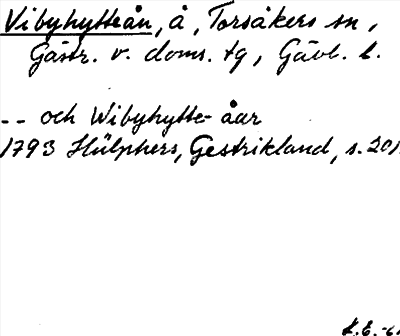 Vibyhytteån, å, Torsåkers sn,
Gästr. v. doms. tg, Gävl. l.
-- och Wibyhytte-åar
1793 Hülphers, Gestrikland, s. 201